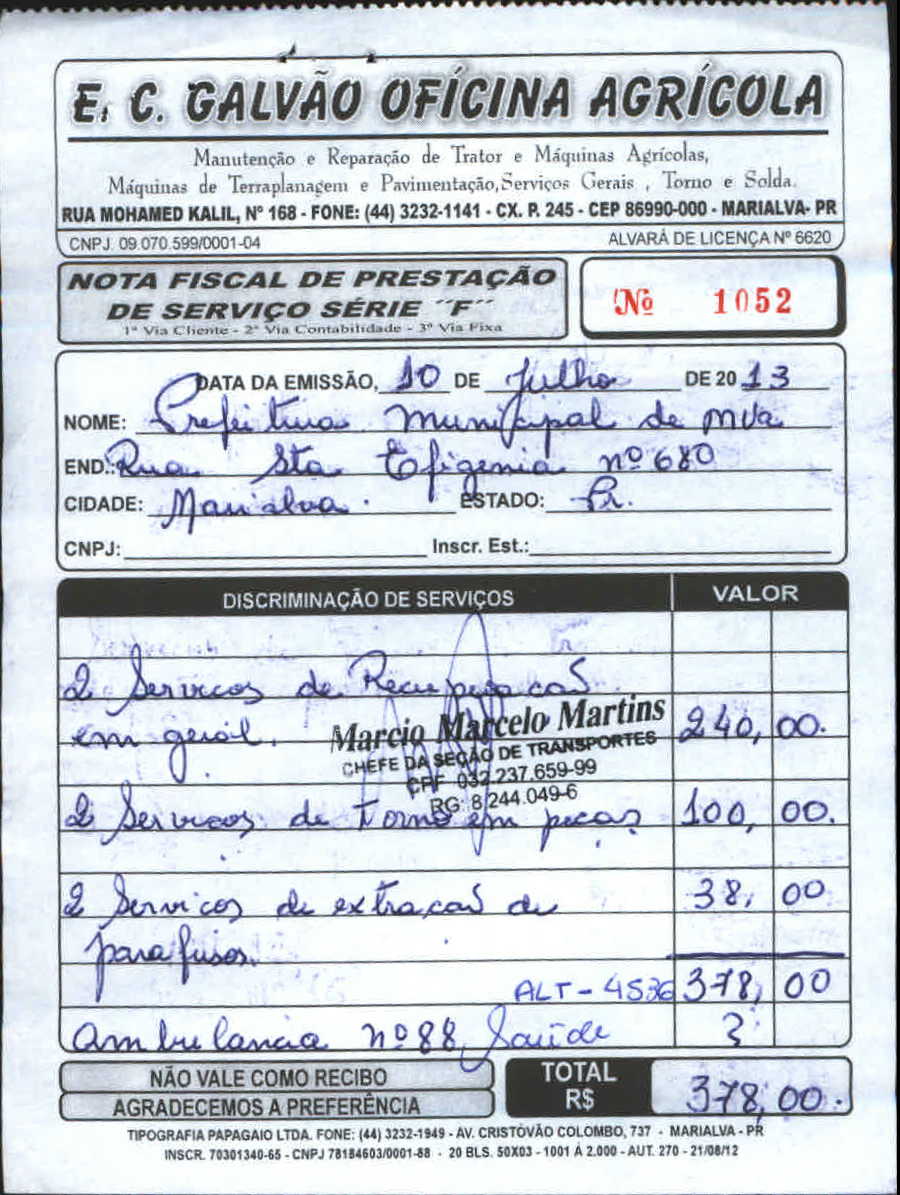 E. C. GALVÃO OFÍCINA AGRÍCOLA
Manutenção e Reparação de Trator e Máquinas Agrícolas,
Máquinas de Terraplanagem e Pavimentação, Serviços Gerais , Torno e Solda.
RUA MOHAMED KALIL, Nº 168 - FONE: (44) 3232-1141 - CX. P. 245 - CEP 86990-000 - MARIALVA- PR
CNPJ. 09.070.599/0001-04 ALVARÁ DE LICENÇA Nº 6620
NOTA FISCAL DE PRESTAÇÃO
DE SERVIÇO SÉRIE ˝F˝
1ª Via Cliente - 2ª Via Contabilidade - 3ª Via Fixa
Nº 1052
DATA DA EMISSÃO, 10 DE Julho DE 2013
NOME: Prefeitura Municipal de Mva
END.: Rua Sta Efigenia nº 680
CIDADE: Marialva. ESTADO: Pr.
CNPJ: Inscr. Est.:
DISCRIMINAÇÃO DE SERVIÇOS VALOR
2 Servicos de Recuperacaõ
em geral. 240,00.
Marcio Marcelo Martins
CHEFE DA SEÇÃO DE TRANSPORTES
CPF 032.237.659-99
RG: 8.244.049-6
2 Servicos de Torno em pecas 100,00.
2 Servicos de extracaõ de 38,00
parafusos.
ALT-4536 378,00
Ambulancia nº 88, Saúde
NÃO VALE COMO RECIBO
AGRADECEMOS A PREFERÊNCIA
TOTAL R$ 378,00.
TIPOGRAFIA PAPAGAIO LTDA. FONE: (44) 3232-1949 - AV. CRISTÓVÃO COLOMBO, 737 - MARIALVA - PR
INSCR. 70301340-65 - CNPJ 78184603/0001-88 - 20 BLS. 50X03 - 1001 Á 2.000 - AUT. 270 - 21/08/12